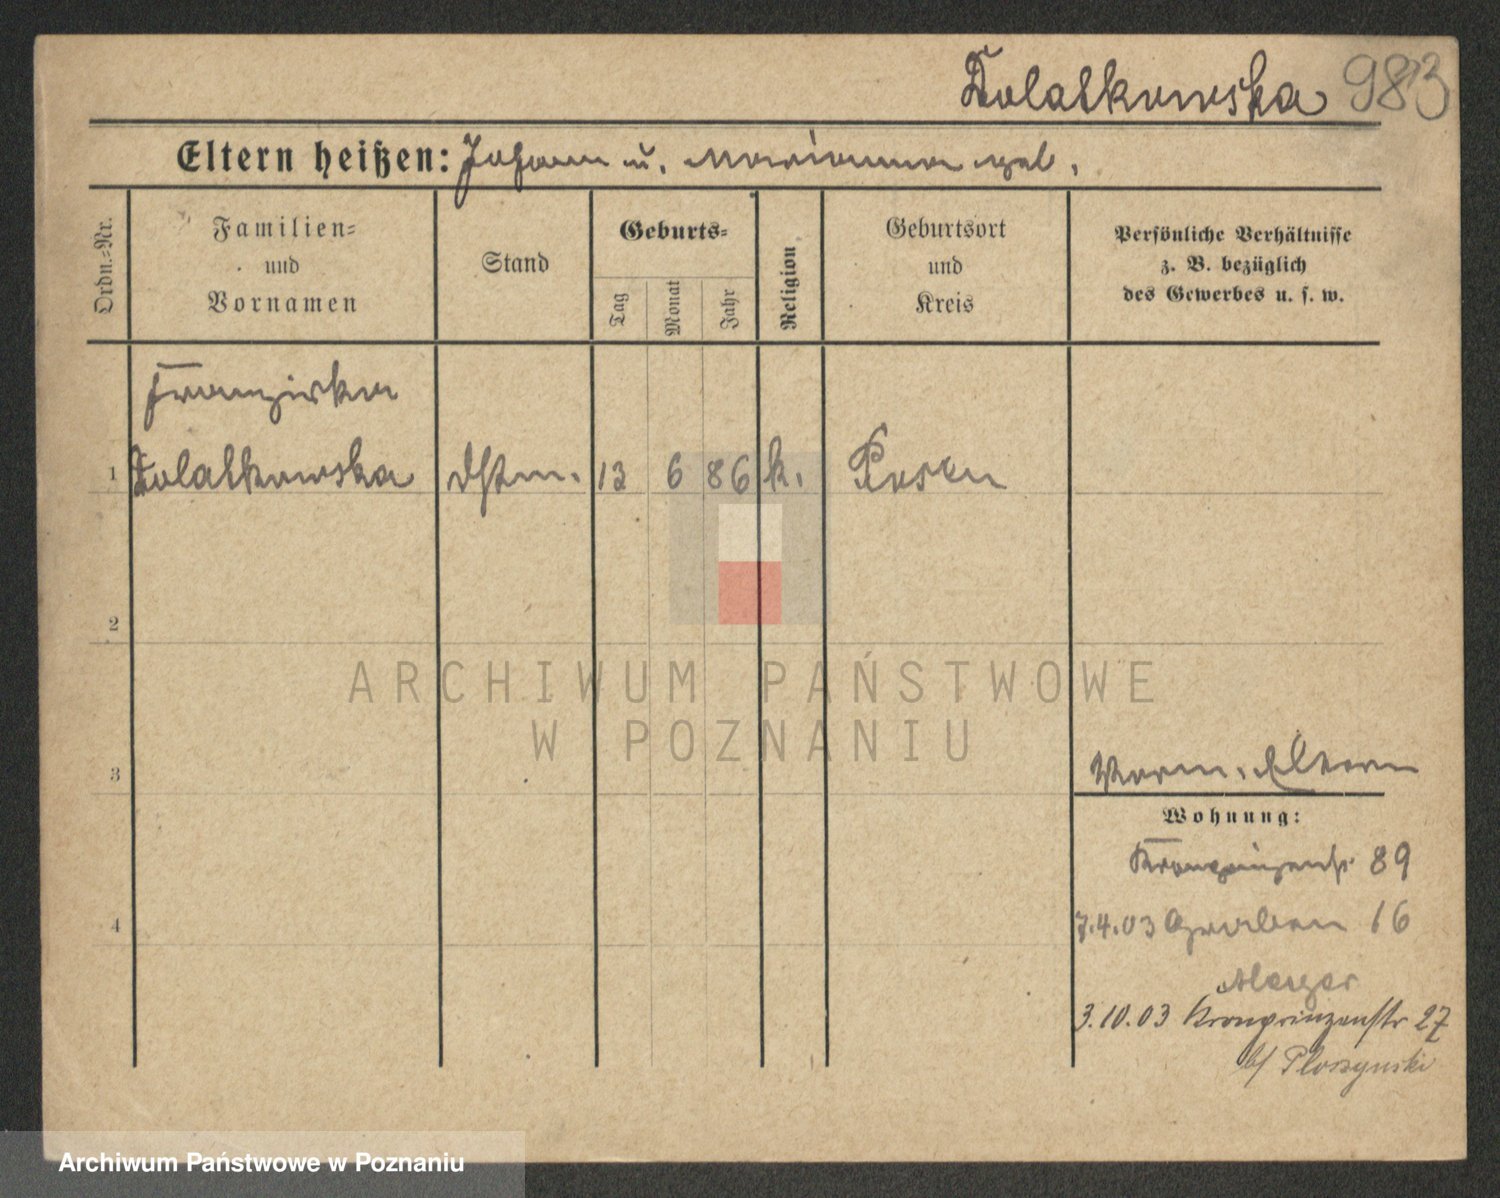 Kolatkowska 983
Eltern heißen: Johann u. Marianna geb.
Ordn.=Nr.
Familien=
und
Vornamen
Stand
Geburts=
Tag
Monat
Jahr
Religion
Geburtsort
und
Kreis
Persönliche Verhältnisse
z. B. bezüglich
des Gewerbes u. s. w.
Franziska
1 Kolatkowska Dstm. 13 6 86 k. Posen
2
ARCHIWUM PAŃSTWOWE
W POZNANIU
3 Eltern
Wohnung:
Kronprinzenstr 89
4 7.4.03 Graben 16
3.10.03 Kronprinzenstr 27
b/ Ploszynski
Archiwum Państwowe w Poznaniu